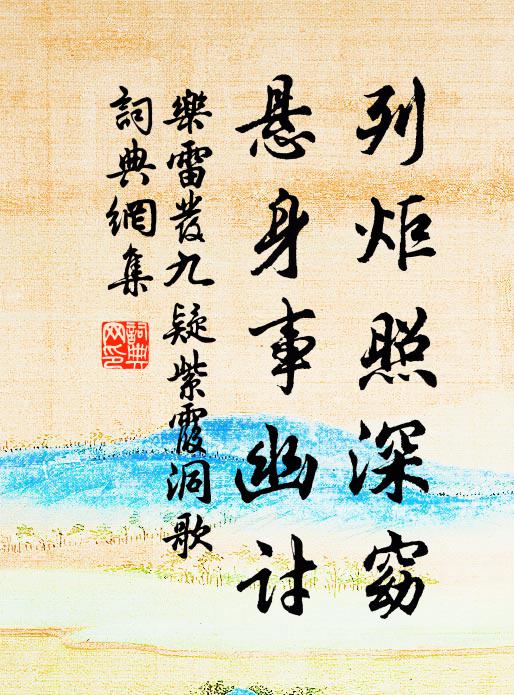 列炬照深窈
悬身事幽討
樂雷發九疑紫霞洞歌
詞典網集
詞典網印